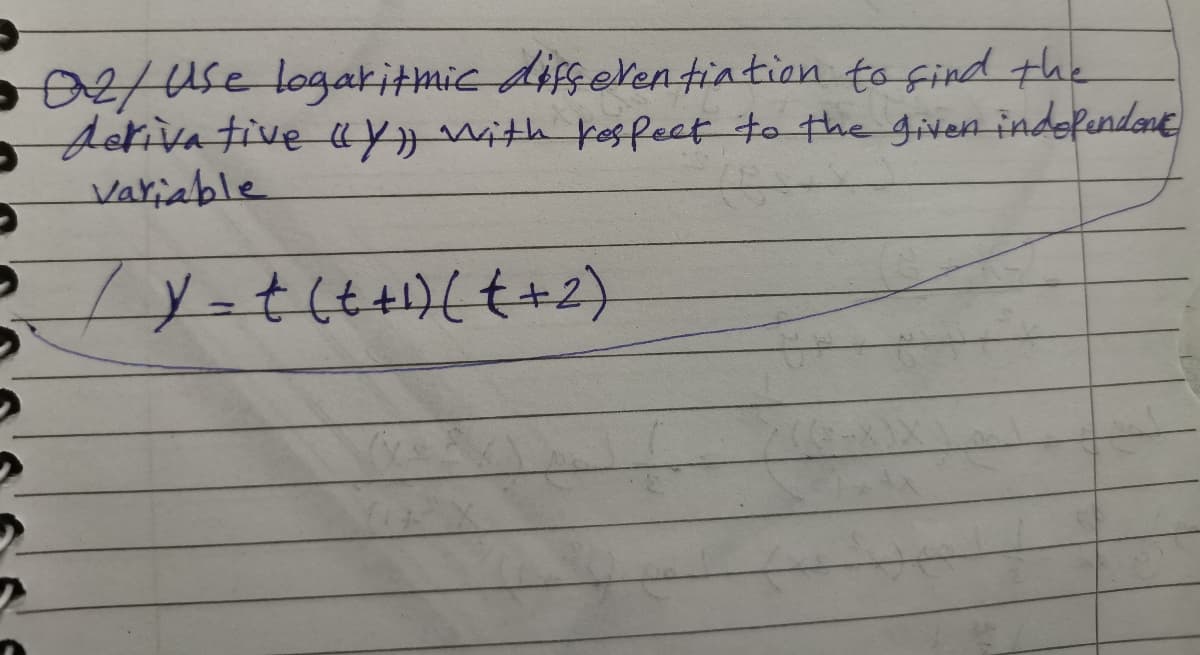 Q2/ Use logaritmic differentiation to find the
derivative «y» with respect to the given independent
variable
/ y = t (t+1)(t+2)